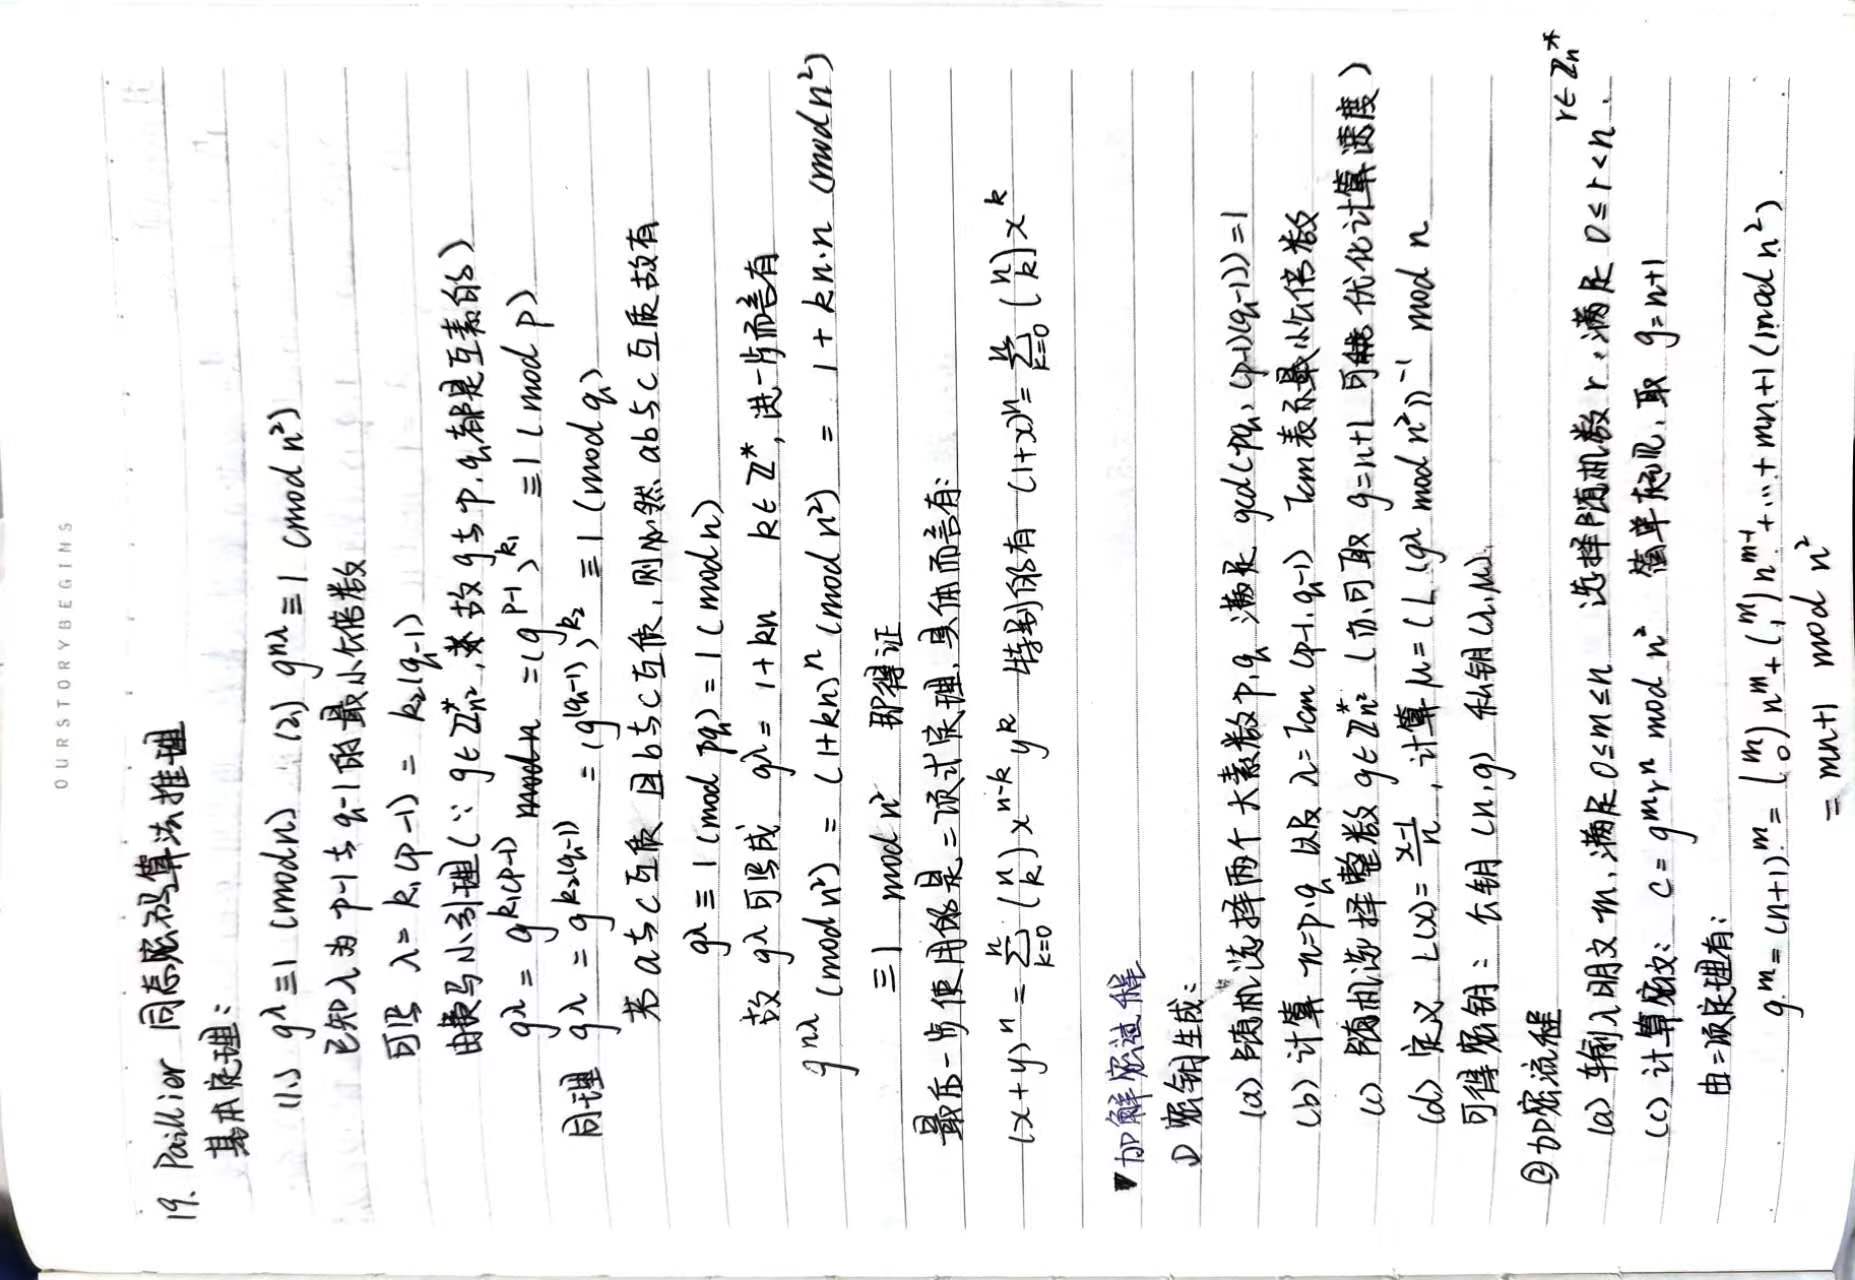 OURSTORYBEGINS
19. Paillier 同态密码算法推理
基本定理:
(1.) g^λ ≡ 1 (mod n) (2.) g^{nλ} ≡ 1 (mod n²)
已知 λ 为 p-1 与 q-1 的最小公倍数
可写 λ = k₁(p-1) = k₂(q-1)
由费马小引理 (∵ g∈Z*_{n²}, 故 g与p,q都是互素的)
g^λ = g^{k₁(p-1)} mod n = (g^{p-1})^{k₁} ≡ 1 (mod p)
同理 g^λ = g^{k₂(q-1)} = (g^{(q-1)})^{k₂} ≡ 1 (mod q)
若 a与c互质 且b与c互质, 则必然 ab与c互质 故有
g^λ ≡ 1 (mod pq) = 1 (mod n)
故 g^λ 可写成 g^λ = 1+kn k∈Z*, 进一步而言有
g^{nλ} (mod n²) = (1+kn)^n (mod n²) = 1 + kn·n (mod n²)
≡ 1 mod n² 即得证
最后一步使用的是二项式定理, 具体而言有:
(x+y)^n = Σ_{k=0}^{n} (n k) x^{n-k} y^k 特别的有 (1+x)^n = Σ_{k=0}^{n} (n k) x^k
▼加解密过程
① 密钥生成:
(a) 随机选择两个大素数p,q 满足 gcd(pq, (p-1)(q-1))=1
(b) 计算 n=p·q 以及 λ=lcm (p-1,q-1) lcm表示最小公倍数
(c) 随机选择整数 g∈Z*_{n²} (亦可取 g=n+1 可 优化计算速度)
(d) 定义 L(x)= \frac{x-1}{n}, 计算 μ=(L(g^λ mod n²))^{-1} mod n
可得密钥: 公钥 (n,g) 私钥(λ,μ).
② 加密流程
(a) 输入明文 m, 满足 0≤m≤n 选择随机数 r, 满足 0≤r<n. r∈Z_n^*
(c) 计算密文: c = g^m r^n mod n² 简单起见, 取 g=n+1
由二项定理有:
g^m = (n+1)^m = (m 0) n^m + (m 1) n^{m-1} + ... + mn+1 (mod n²)
= mn+1 mod n²